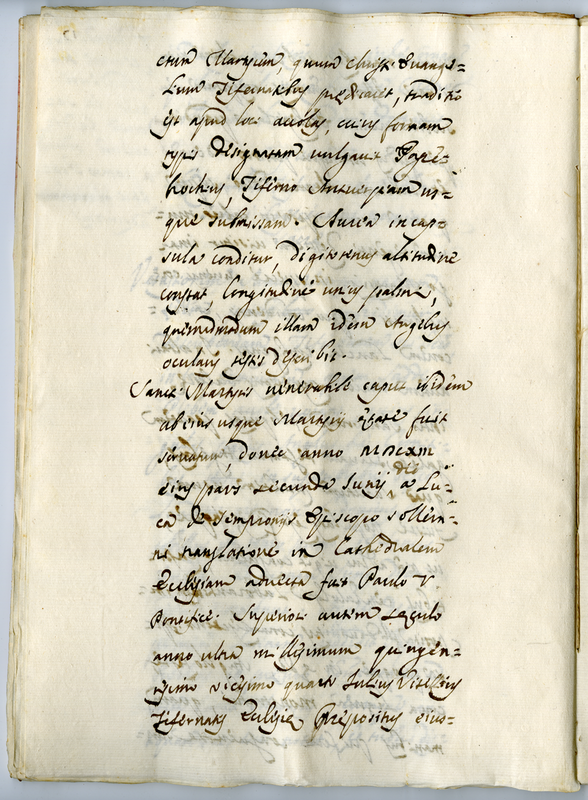 ctum Martyrem, quum Christi Evange=
lium Tifernatibus prędicaret, traditio
est apud loci accolas, cuius formam
typis designatam vulgavit Pape=
brochius, Tiferno Antuerpiam us=
que submissam. Aurea in cap=
sula conditur, digiti tenus altitudine
constat, longitudine unius palmi,
quemadmodum illam idem Angelus
ocularis testis describit.
Sancti Martyris venerabile caput ibidem
ab eius usque Martyrij ętate fuit
servatum, donec anno
eius pars secunda Junij die, a Lu=
ca de Sempronijs Episcopo sollem=
ni translatione in Cathedralem
Ecclesiam advecta fuit Paulo V
Pontifice. Superiori autem sęculo
anno ultra millesimum quingen=
tesimo vicesimo quarto Julius Vitellius
Tifernatis Ecclesię Prępositus eius=